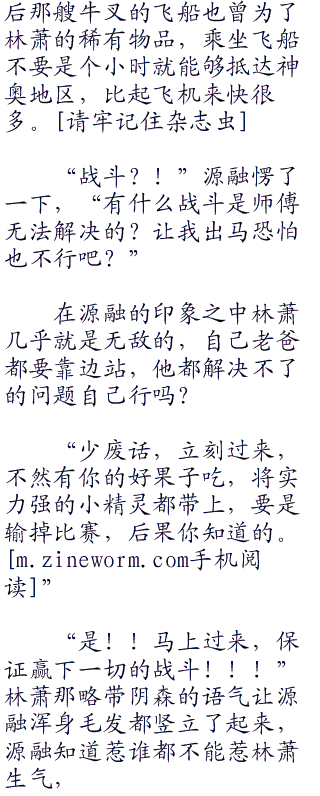 后那艘牛叉的飞船也曾为了
林萧的稀有物品，乘坐飞船
不要是个小时就能够抵达神
奥地区，比起飞机来快很
多。[请牢记住杂志虫]
“战斗？！”源融愣了
一下，“有什么战斗是师傅
无法解决的？让我出马恐怕
也不行吧？”
在源融的印象之中林萧
几乎就是无敌的，自己老爸
都要靠边站，他都解决不了
的问题自己行吗？
“少废话，立刻过来，
不然有你的好果子吃，将实
力强的小精灵都带上，要是
输掉比赛，后果你知道的。
[m.zineworm.com手机阅
读]”
“是！！马上过来，保
证赢下一切的战斗！！！”
林萧那略带阴森的语气让源
融浑身毛发都竖立了起来，
源融知道惹谁都不能惹林萧
生气，